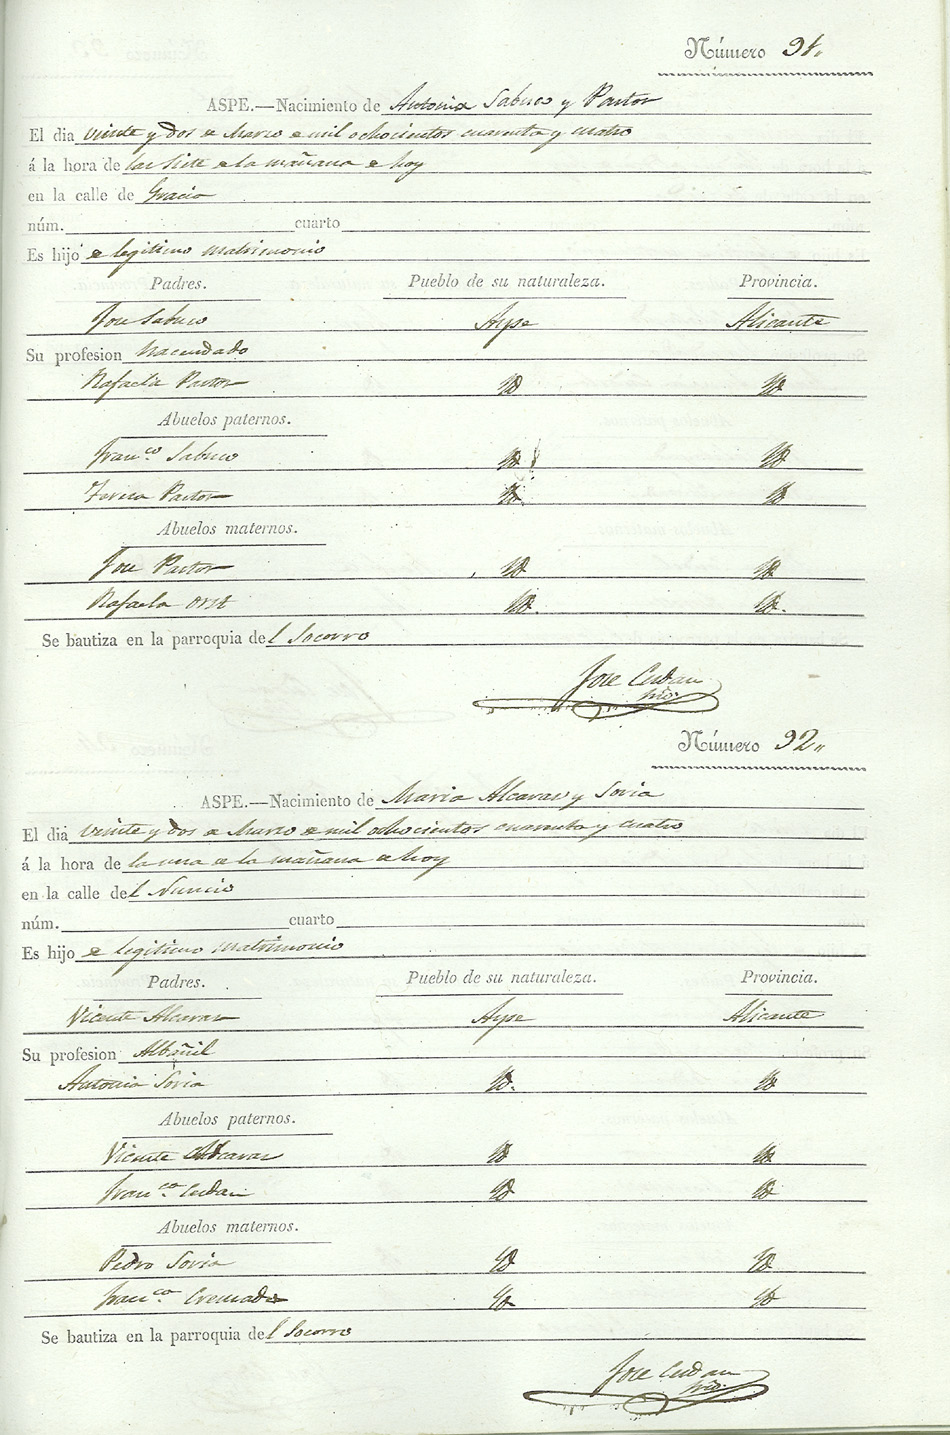 Número 91.
ASPE.—Nacimiento de Antonia Sabuco y Pastor
El dia veinte y dos de Marzo de mil ochocientos cuarenta y cuatro
á la hora de las siete de la mañana de hoy
en la calle de Gracia
núm. cuarto
Es hijo de legitimo matrimonio
Padres. Pueblo de su naturaleza. Provincia.
Jose Sabuco Aspe Alicante
Su profesion hacendado
Rafaela Pastor Yd Yd
Abuelos paternos.
Franco. Sabuco Yd Yd
Teresa Pastor Yd. Yd
Abuelos maternos.
Jose Pastor Yd Yd
Rafaela Yd. Yd.
Se bautiza en la parroquia del Socorro
Jose Cerdan
Número 92.
ASPE.—Nacimiento de Maria Alcaraz y Soria
El dia veinte y dos de Marzo de mil ochocientos cuarenta y cuatro
á la hora de la una de la mañana de hoy
en la calle del Nuncio
núm. cuarto
Es hijo de legitimo matrimonio
Padres. Pueblo de su naturaleza. Provincia.
Vicente Alcaraz Aspe Alicante
Su profesion Albañil
Antonia Soria Yd. Yd
Abuelos paternos.
Vicente Alcaraz Yd Yd
Franca. Cerdan Yd Yd
Abuelos maternos.
Pedro Soria Yd Yd
Franca. Cremades Yd Yd
Se bautiza en la parroquia del Socorro
Jose Cerdan